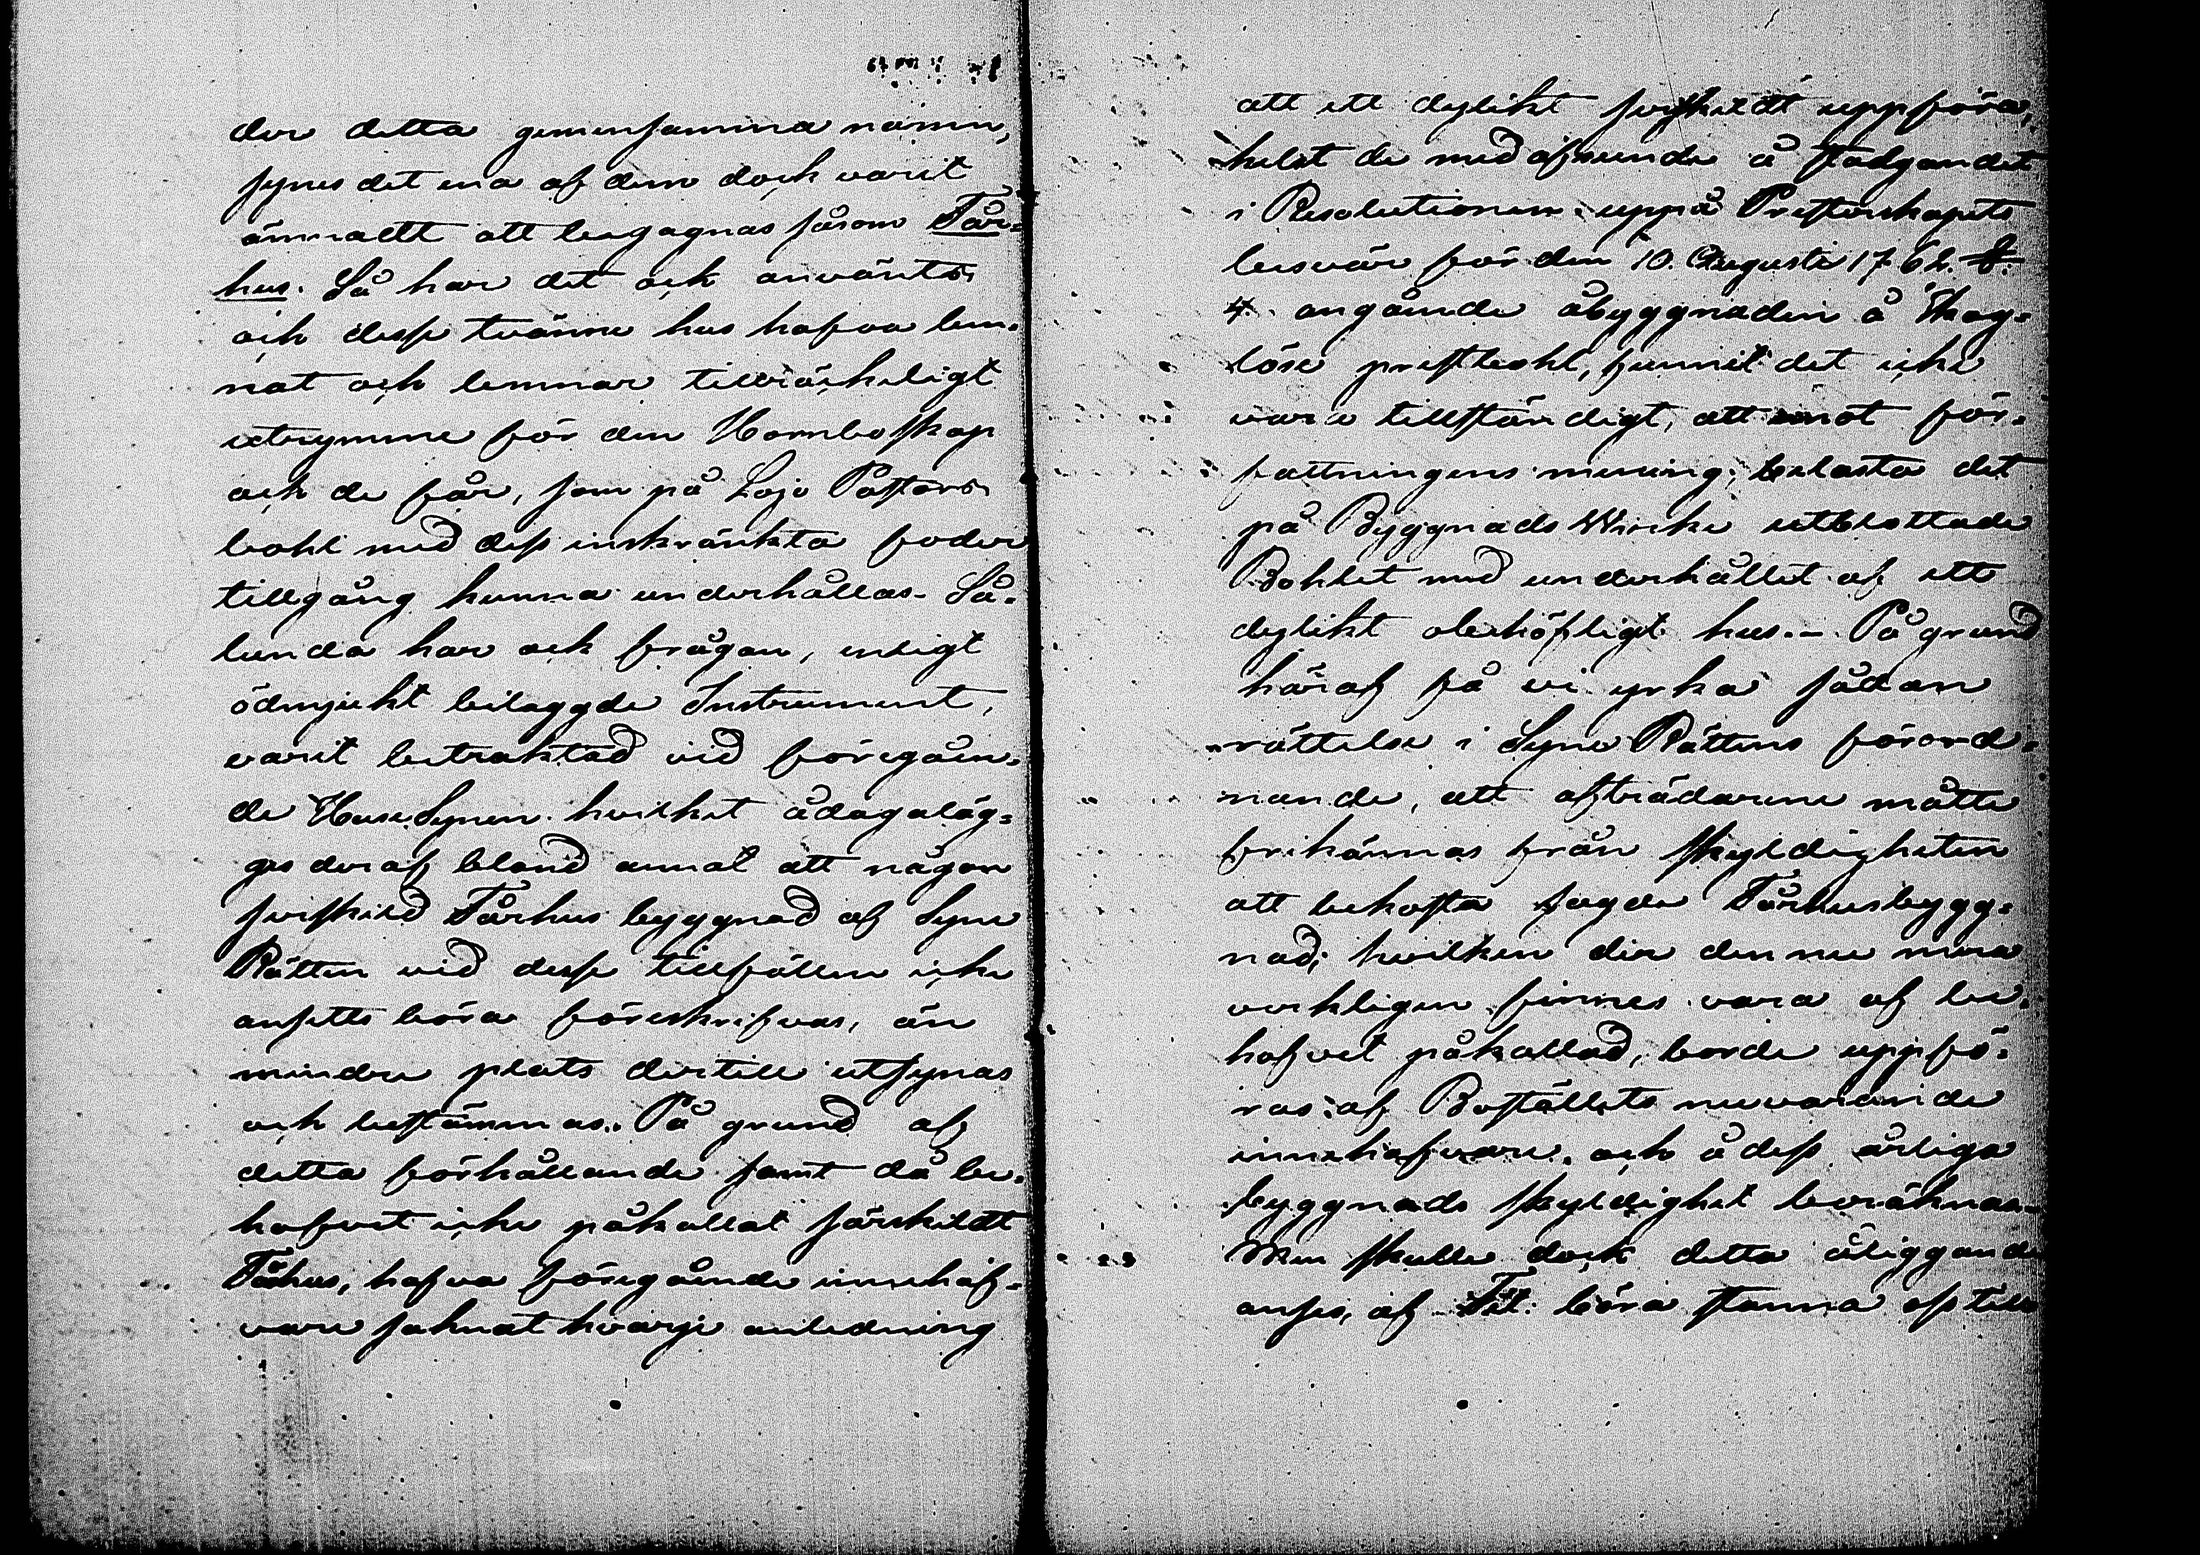 der detta gemensamma namn,
synes det ena af dem dock varit
ämnadt att begagnas såsom Får-
hus. Så har det ock använts
och desse tvänne hus hafva lem-
nat och lemnar tillräckeligt
utrymme för den Hornboskap
och de får, som på Lojo Pastors
bohl med dess inskränkta foder
tillgång kunna underhållas. Så-
lunda har ock frågan, enligt
ödmjukt bilaggde Instrument,
varit betraktad vid föregåen-
de HuseSynen hvilket ådagaläg-
ges deraf bland annat att någon
serskild Fårhus byggnad af Syne
Rätten vid desse tillfällen icke
ansetts böra föreskrifvas, än
mindre plats dertill utsynas
och bestämmas. På grund af
detta förhållande samt då be-
hofvet icke påkallat särskildt
Fårhus, hafva föregående innehaf-
vare saknat hvarje anledning
att ett dylikt serskildt uppföra,
helst de med afseende å stadgandet
i Resolutionen uppå Presterskapets
besvär för den 10. Augusti 1762. §.
4. angående åbyggnaden å skog-
löse prestbohl, funnit det icke
vara tillständigt, att emot för-
fattningens mening, belasta det
på Byggnads Wirke utblottade
Bohlet med underhållet af ett
dylikt obehöfligt hus. - På grund
häraf få vi yrka sådan
rättelse i Syne Rättens förord-
nande, att afträdarene måtte
frikännas från skyldigheten
att bekosta sagde Fårhusbygg-
nad; hvilken der den nu mera
verkligen finnes vara af be-
hofvet påkallad, borde uppfö-
ras af Boställets nuvarande
innehafvare och å dess årliga
byggnads skyldighet beräknas -
Men skulle dock detta åliggande
anses, af Tit. böra stanna oss till